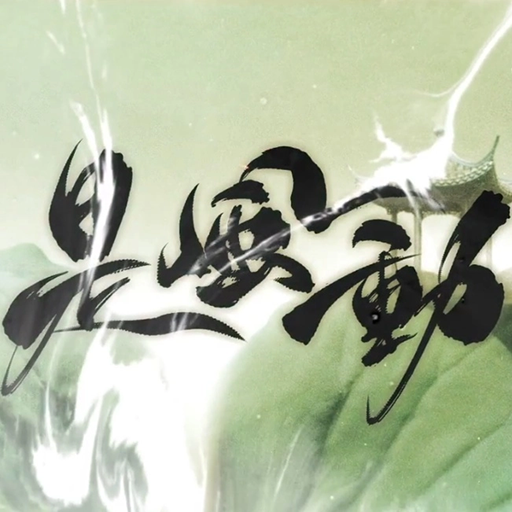 是風動